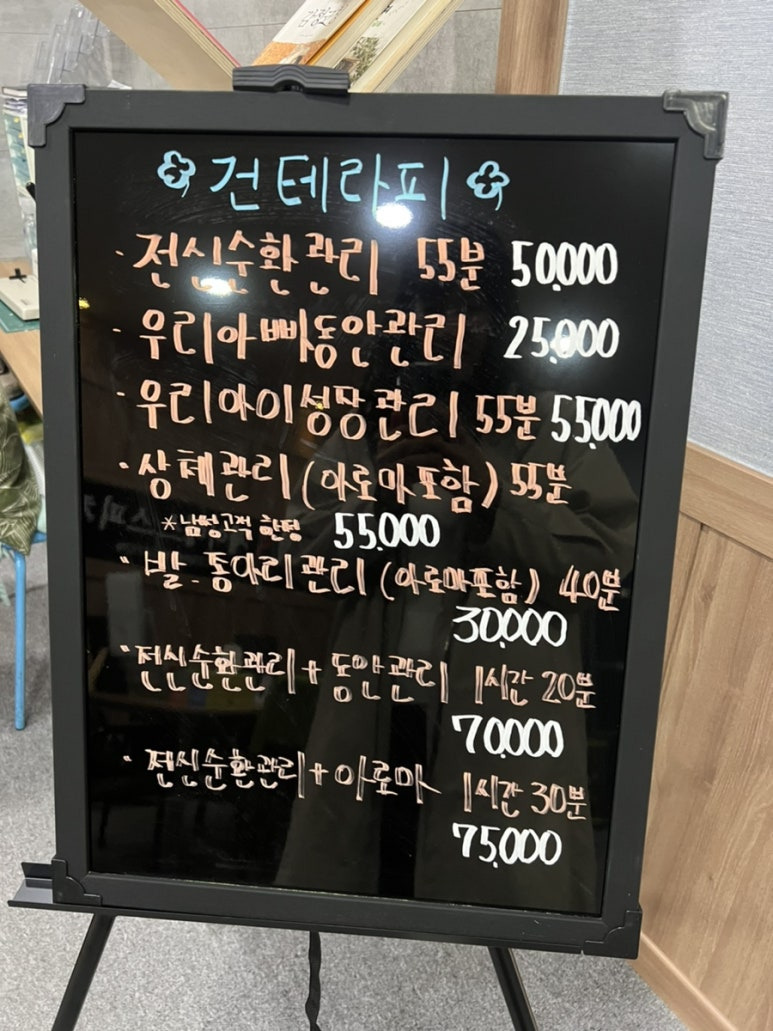 건테라피
· 전신순환관리 55분 50,000
· 우리아빠동안관리 25,000
· 우리아이성장관리 55분 55,000
· 상체관리 (아로마포함) 55분
*남성고적 한정 55,000
· 발.종아리관리 (아로마포함) 40분
30,000
· 전신순환관리 + 동안관리 1시간 20분
70,000
· 전신순환관리 + 아로마 1시간 30분
75,000